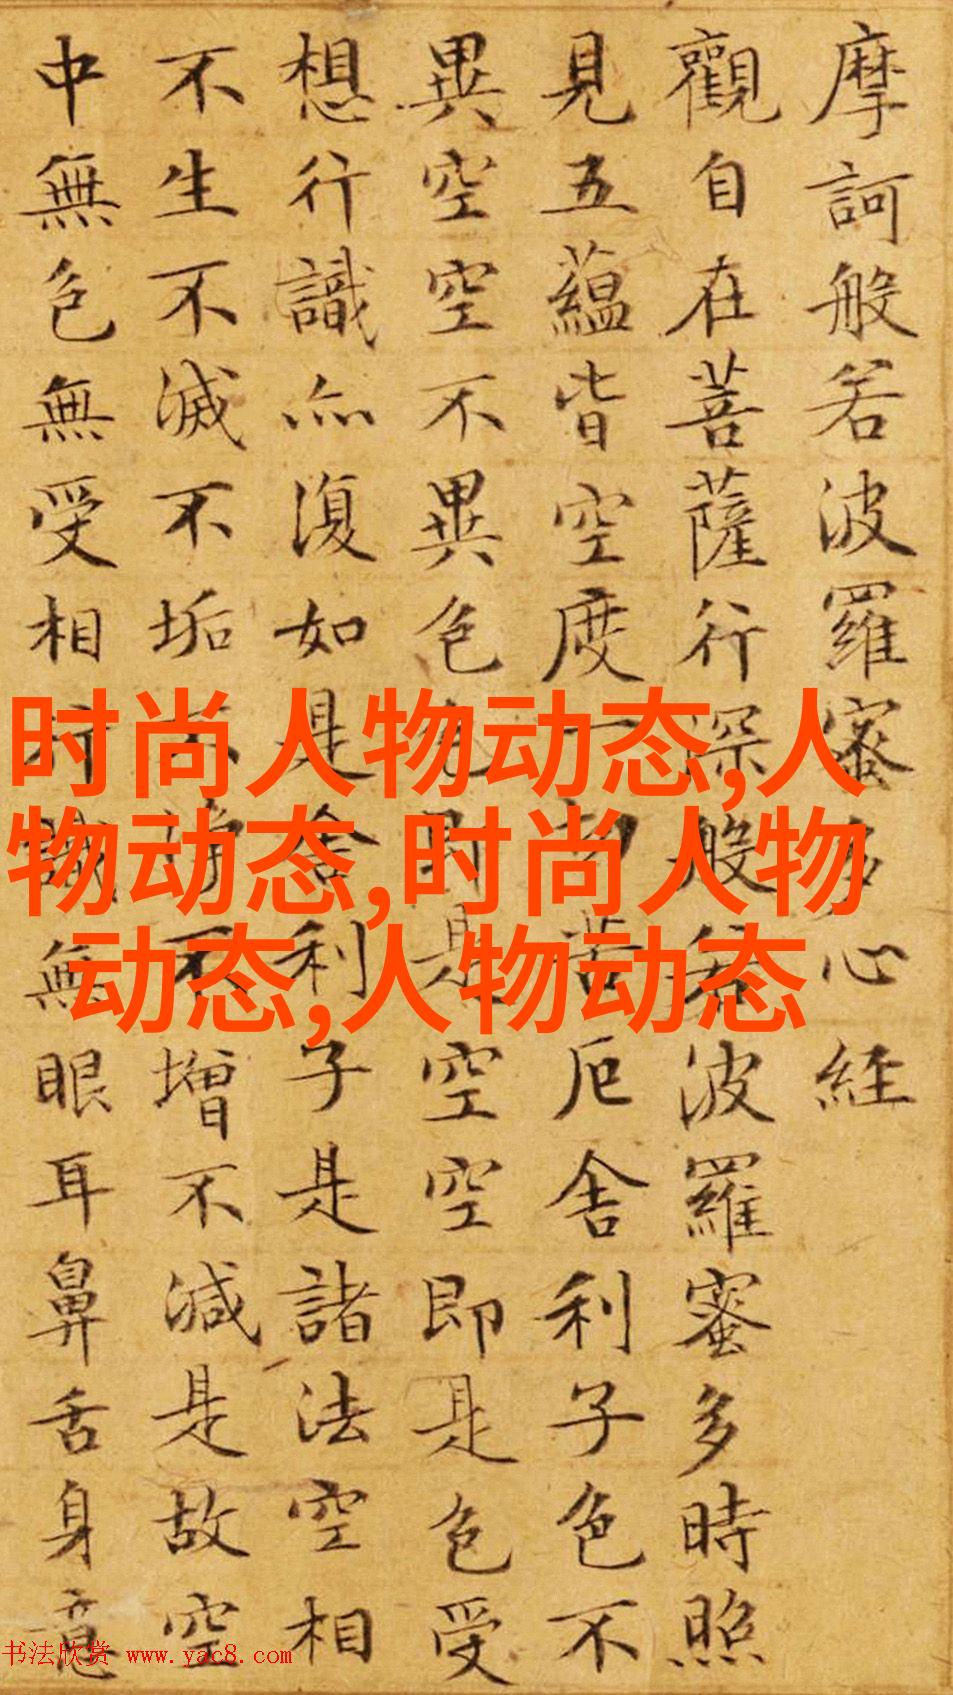 摩訶般若波羅蜜多心経
觀自在菩薩行深般若波羅蜜多時照
見五蘊皆空度一切苦厄舎利子色不
異空空不異色色即是空空即是色受
想行識亦復如是舎利子是諸法空相
不生不滅不垢不淨不增不減是故空
中無色無受想行識無眼耳鼻舌身意
时尚人物动态,人
物动态,时尚人物
动态,人物动态
书法欣赏 www.yac8.com